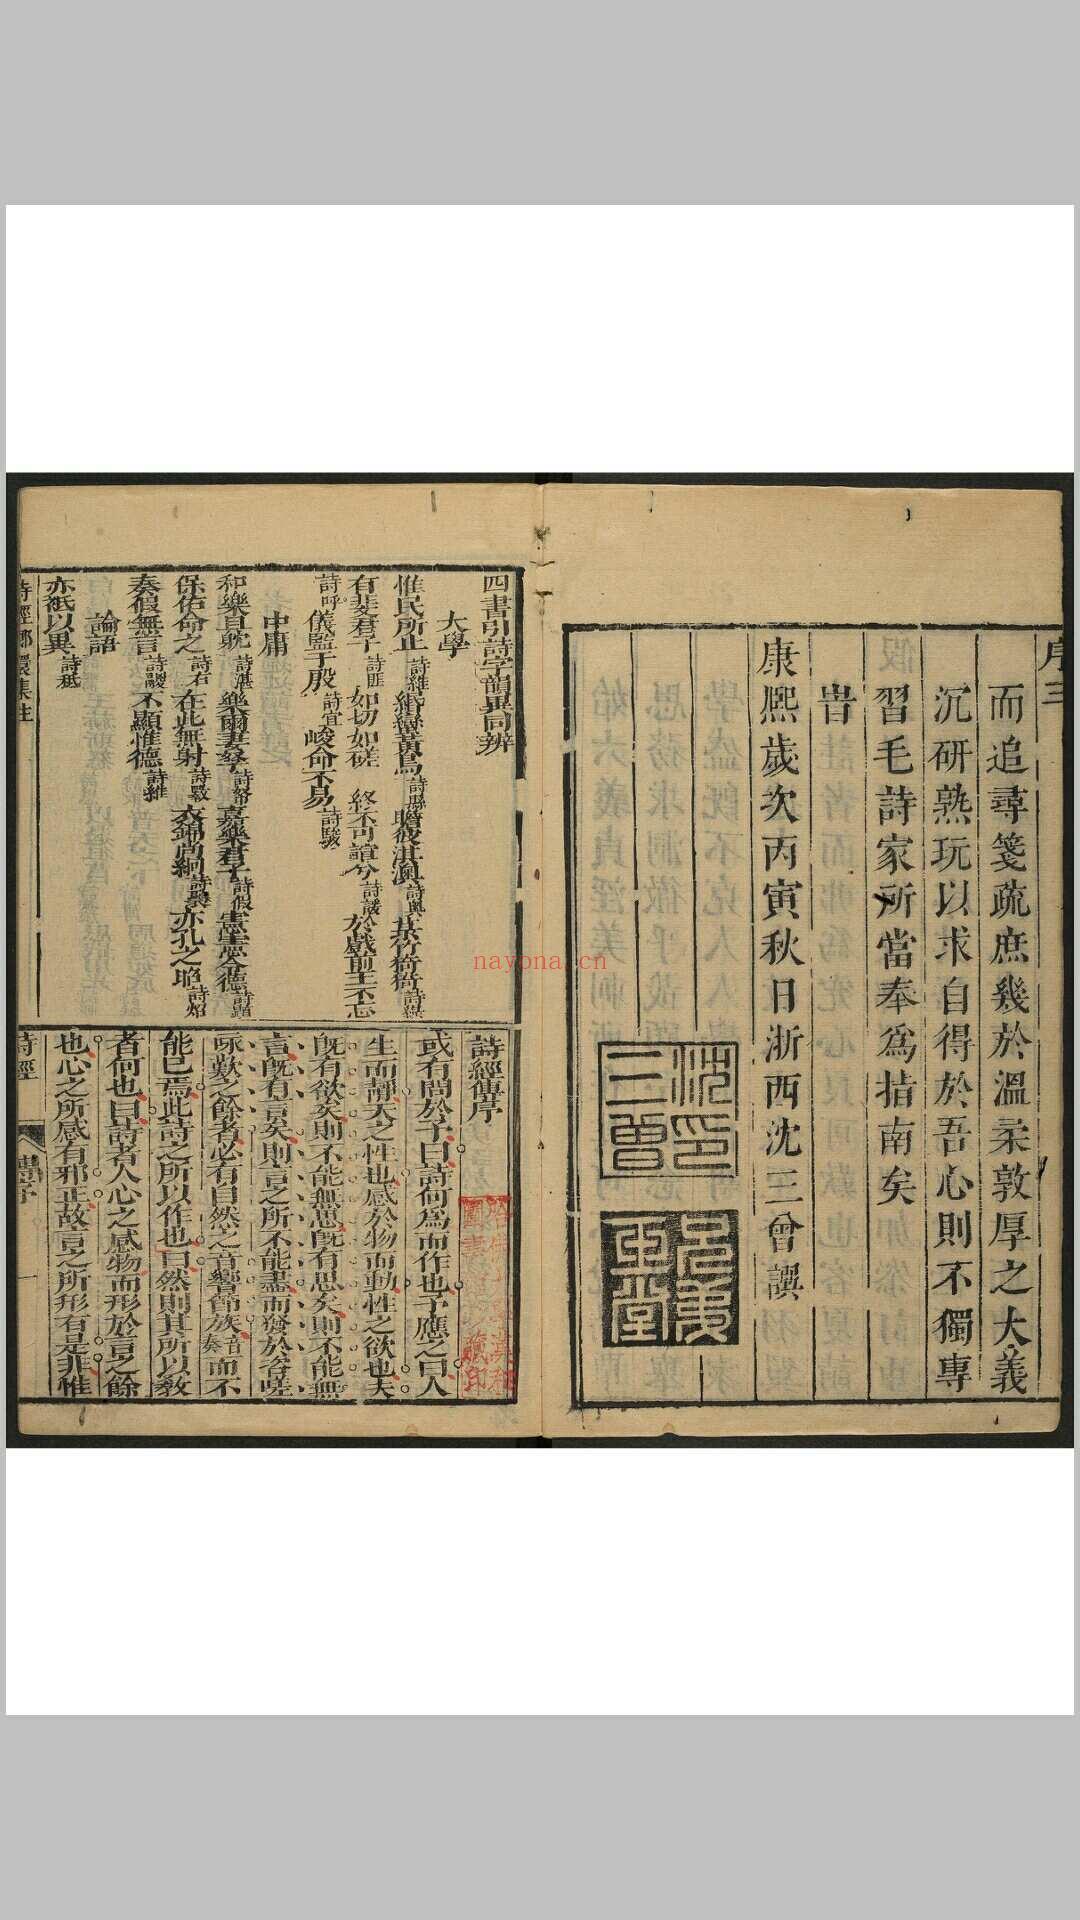 序三
而追尋箋疏庶幾於溫柔敦厚之大義
沉研熟玩以求自得於吾心則不獨專
習毛詩家所當奉爲指南矣
旹
康熙歲次丙寅秋日浙西沈三曾譔
沈三曾印
四書引詩字韻異同辨
大學
惟民所止詩維緡蠻黃鳥詩緜瞻彼淇澳詩奧菉竹猗猗詩綠
有斐君子詩匪如切如磋 終不可諠兮詩諼於戲前王不忘
詩呼儀監于殷詩宜峻命不易詩駿
中庸
和樂且耽詩湛樂爾妻孥詩帑嘉樂君子詩假憲憲令德詩
保佑命之詩右在此無射詩斁衣錦尚絅詩褧亦孔之昭詩炤
奏假無言詩鬷不顯惟德詩維
論語
亦祇以異詩祗
詩經
集註
詩經傳序
或有問於予曰詩何爲而作也予應之曰人
生而靜天之性也感於物而動性之欲也夫
旣有欲矣則不能無思旣有思矣則不能無
言旣有言矣則言之所不能盡而發於咨嗟
咏歎之餘者必有自然之音響節族音奏而不
能已焉此詩之所以作也曰然則其所以敎
者何也曰詩者人心之感物而形於言之餘
也心之所感有邪正故言之所形有是非惟
詩經
序
一
nayona.cn